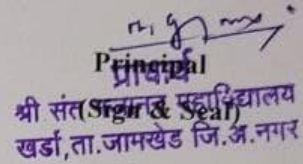 Principal
प्राचार्य
(Sign & Seal)
श्री संत महाविद्यालय
खर्डा,ता.जामखेड जि.अ.नगर